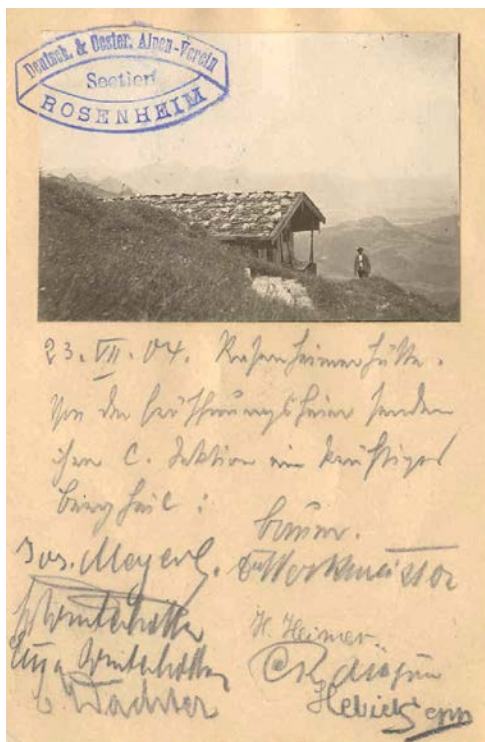 Deutsch. & Oester. Alpen-Verein
Section
ROSENHEIM
23. VII. 04. Rosenheimerhütte.
Von der Eröffnungsfeier senden
ihrer C. Sektion ein kräftiges
Berg Heil!
Bauer.
Jos. Meyerl.
Werkmeister
Winterholler
H. Heimer.
Winterholler
Wachter